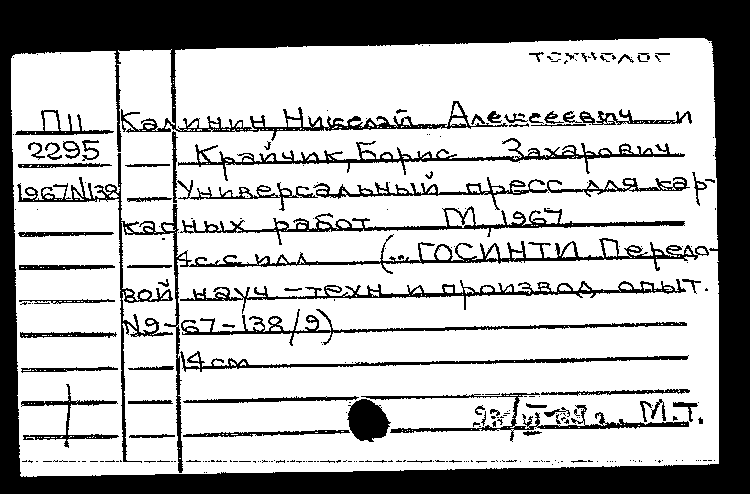 технолог
П11 Калинин, Николай Алексеевич и
2295 Крайчик, Борис Захарович
1967N138 Универсальный пресс для кар-
касных работ М, 1967.
4 с. с илл (... ГОСИНТИ. Передо-
вой науч-техн и производ. опыт.
N9-67-138/9)
14 см
М.Т.